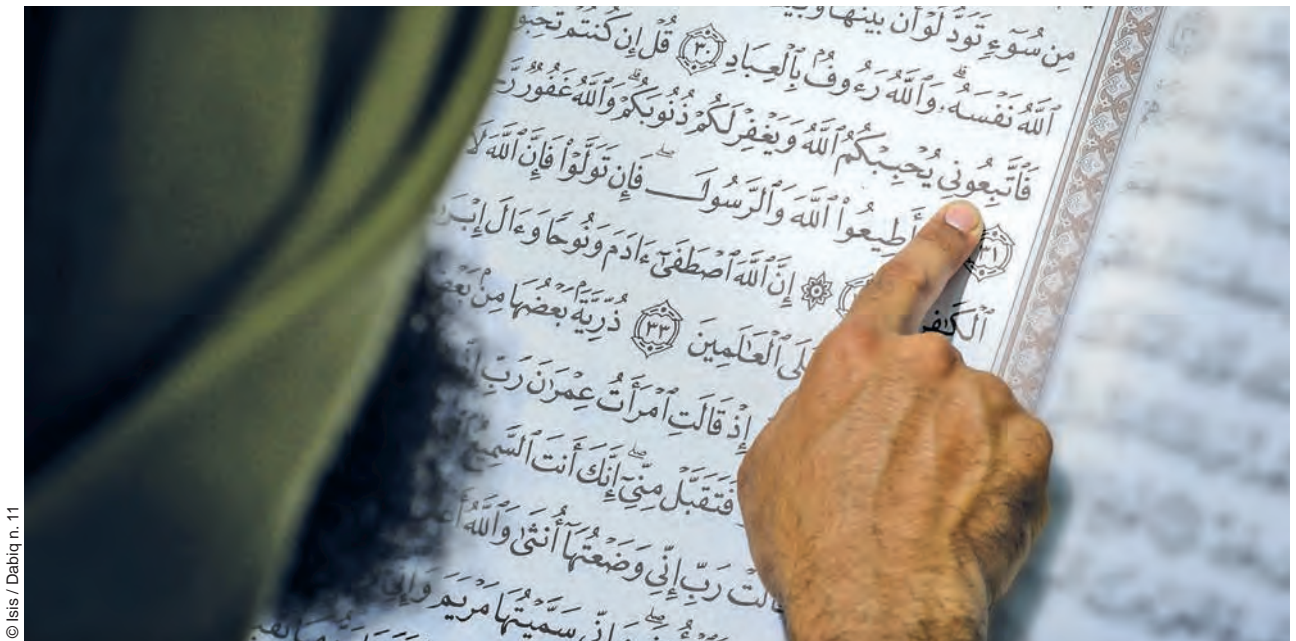 مِن سُوٓءٍ تَوَدُّ لَوۡ أَنَّ بَيۡنَهَا وَبَيۡنَهُۥ
ٱللَّهُ نَفۡسَهُۥۗ وَٱللَّهُ رَءُوفُۢ بِٱلۡعِبَادِ ٣٠ قُلۡ إِن كُنتُمۡ
فَٱتَّبِعُونِي يُحۡبِبۡكُمُ ٱللَّهُ وَيَغۡفِرۡ لَكُمۡ ذُنُوبَكُمۡۚ وَٱللَّهُ غَفُورٞ
٣١ أَطِيعُواْ ٱللَّهَ وَٱلرَّسُولَۖ فَإِن تَوَلَّوۡاْ فَإِنَّ ٱللَّهَ لَا
إِنَّ ٱللَّهَ ٱصۡطَفَىٰٓ ءَادَمَ وَنُوحٗا وَءَالَ
ٱلۡعَٰلَمِينَ ٣٣ ذُرِّيَّةَۢ بَعۡضُهَا مِنۢ
إِذۡ قَالَتِ ٱمۡرَأَتُ عِمۡرَٰنَ رَبِّ
فَتَقَبَّلۡ مِنِّيٓۖ إِنَّكَ أَنتَ ٱلسَّمِيعُ
رَبِّ إِنِّي وَضَعۡتُهَآ أُنثَىٰ وَٱللَّهُ
سَمَّيۡتُهَا مَرۡيَمَ
© Isis / Dabiq n. 11